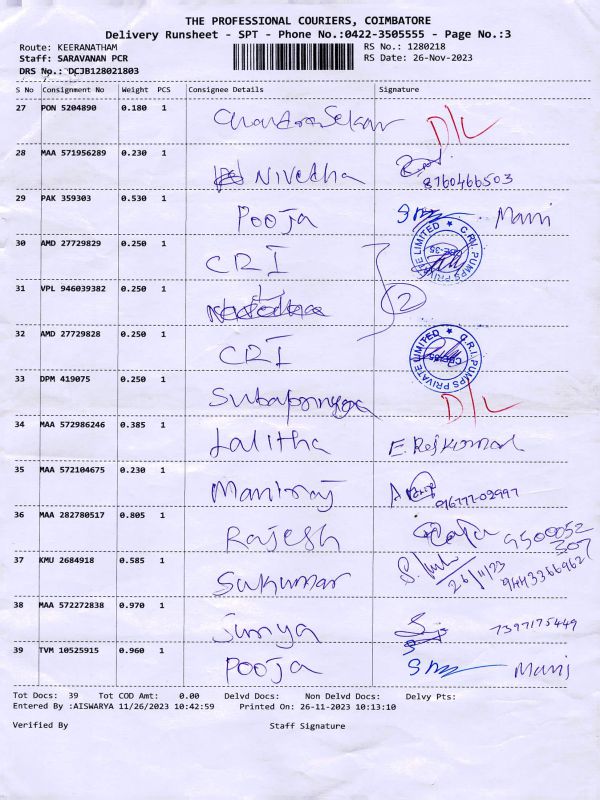 THE PROFESSIONAL COURIERS, COIMBATORE
Delivery Runsheet - SPT - Phone No.:0422-3505555 - Page No.:3
Route: KEERANATHAM RS No.: 1280218
Staff: SARAVANAN PCR RS Date: 26-Nov-2023
DRS No.: DCJB128021803
S No Consignment No Weight PCS Consignee Details Signature
27 PON 5204890 0.180 1 ChandraSekar D/L
28 MAA 571956289 0.230 1 Nivetha
8760466503
29 PAK 359303 0.530 1 Pooja Mani
30 AMD 27729829 0.250 1 CRI
C.R.I. PUMPS PRIVATE LIMITED
31 VPL 946039382 0.250 1 2
32 AMD 27729828 0.250 1 CRI
C.R.I. PUMPS PRIVATE LIMITED
33 DPM 419075 0.250 1 D/L
34 MAA 572986246 0.385 1 Lalitha E. Rajkumar
35 MAA 572104675 0.230 1 Maniraj
36 MAA 282780517 0.805 1 Rajesh 9500052
307
37 KMU 2684918 0.585 1 Sukumar
26/11/23 9443366962
38 MAA 572272838 0.970 1 Suriya 7397175449
39 TVM 10525915 0.960 1 Pooja Mani
Tot Docs: 39 Tot COD Amt: 0.00 Delvd Docs: Non Delvd Docs: Delvy Pts:
Entered By :AISWARYA 11/26/2023 10:42:59 Printed On: 26-11-2023 10:13:10
Verified By Staff Signature